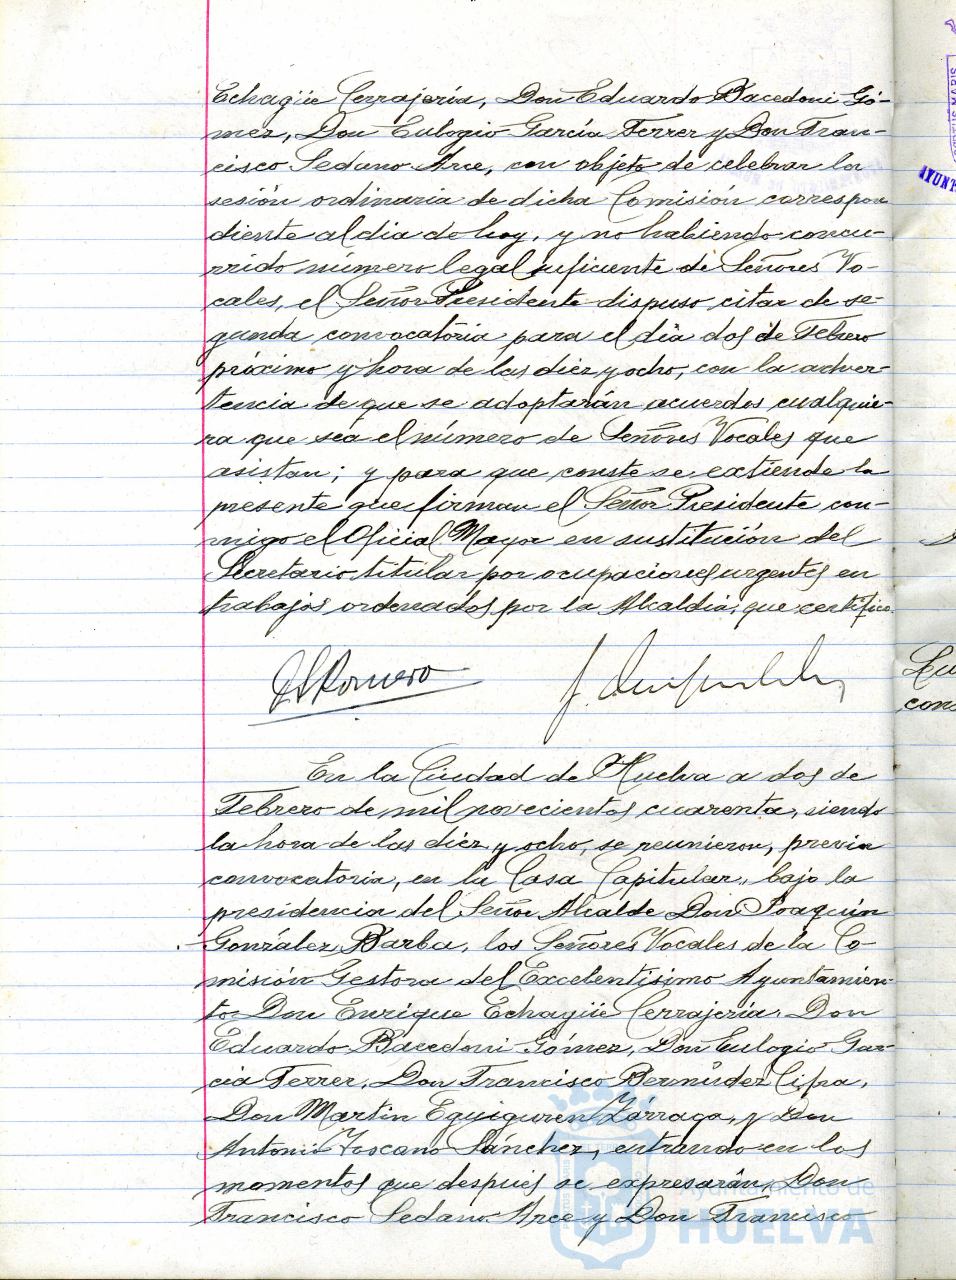 Echagüe Cerrajería, Don Eduardo Bacedoni Gó-
mez, Don Eulogio García Ferrer y Don Fran-
cisco Sedano Arce, con objeto de celebrar la
sesión ordinaria de dicha Comisión correspon
diente al dia de hoy, y no habiendo concu-
rrido número legal suficiente de Señores Vo-
cales, el Señor Presidente dispuso citar de se-
gunda convocatoria para el dia dos de Febrero
próximo y hora de las diez y ocho, con la adver-
tencia de que se adoptarán acuerdos cualquie-
ra que sea el número de Señores Vocales que
asistan; y para que conste se extiende la
presente que firman el Señor Presidente con-
migo el Oficial Mayor en sustitución del
Secretario titular por ocupaciones urgentes en
trabajos ordenados por la Alcaldía, que certifico.
Romero
En la Ciudad de Huelva a dos de
Febrero de mil novecientos cuarenta, siendo
la hora de las diez y ocho, se reunieron, previa
convocatoria, en la Casa Capitular, bajo la
presidencia del Señor Alcalde Don Joaquín
González Barba, los Señores Vocales de la Co-
misión Gestora del Excelentísimo Ayuntamien-
to Don Enrique Echagüe Cerrajería, Don
Eduardo Bacedoni Gómez, Don Eulogio Gar-
cia Ferrer, Don Francisco Bermúdez Cipra,
Don Martin Eguiguren Zárraga, y Don
Antonio Toscano Sánchez, entrando en los
momentos que después se expresarán, Don
Francisco Sedano Arce y Don Francisco
Ayuntamiento de
HUELVA